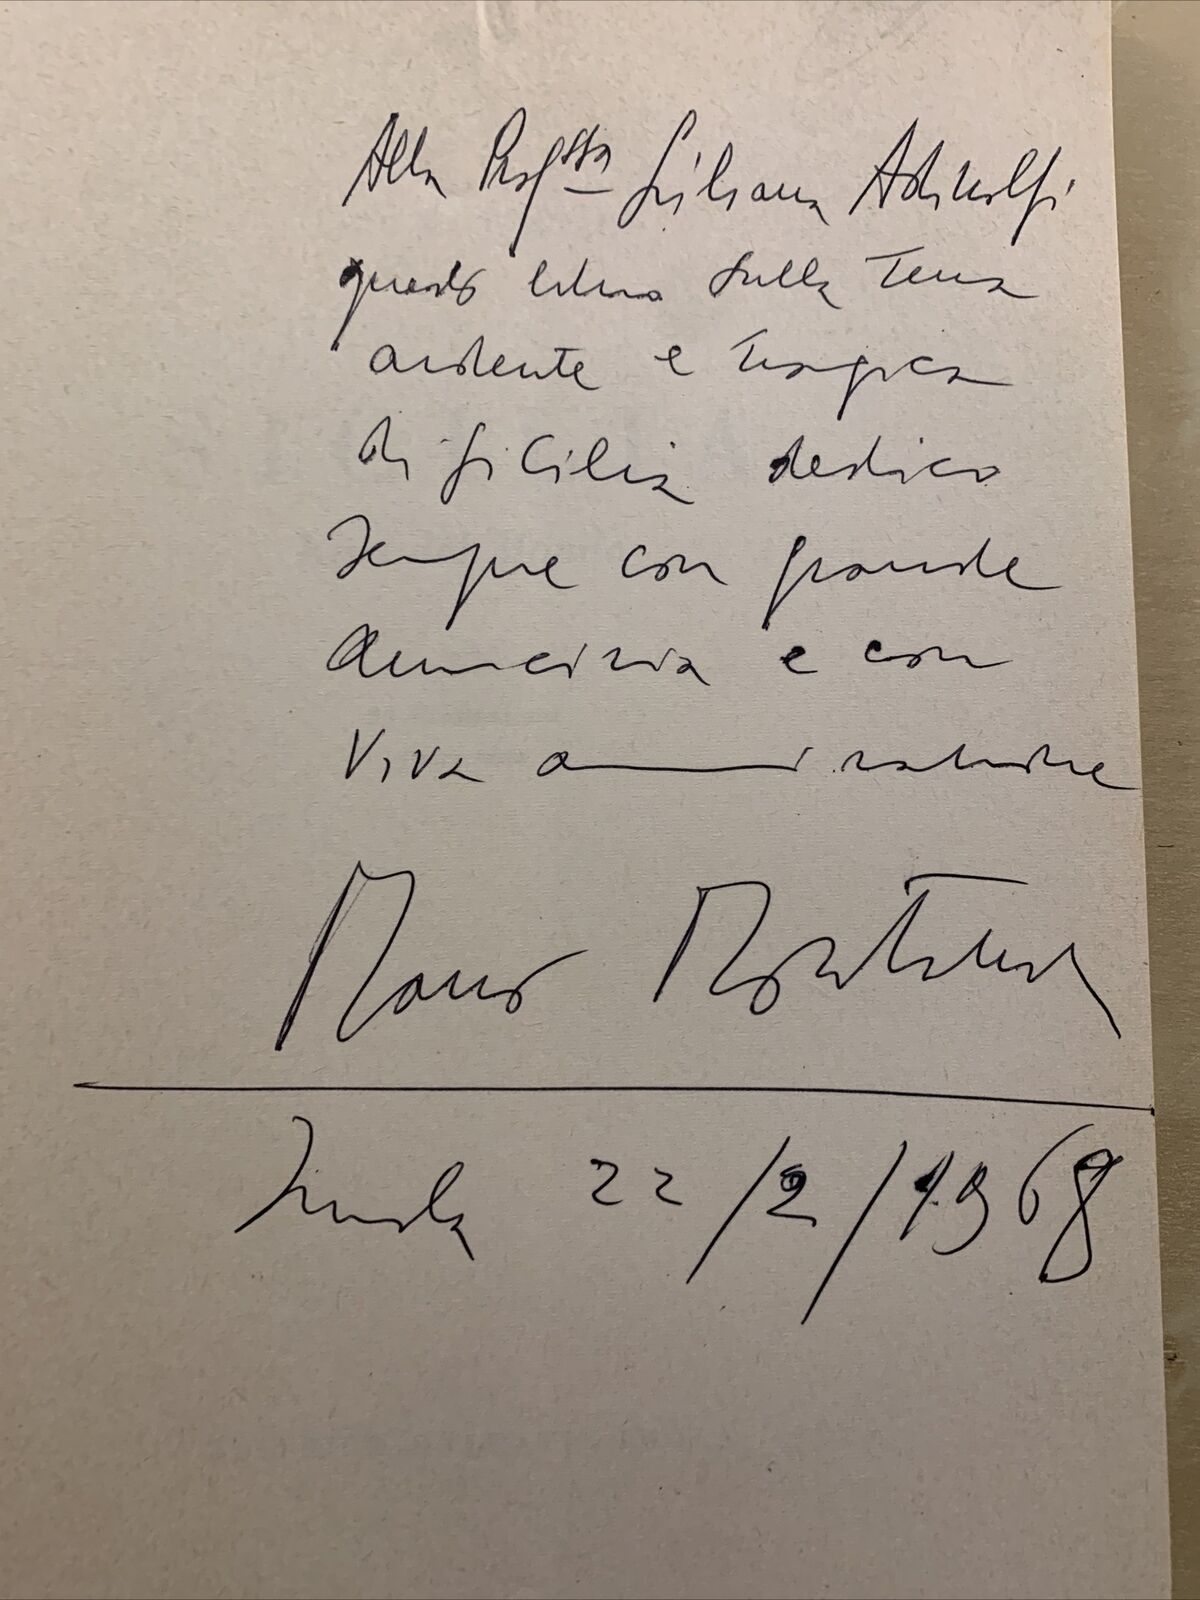 Alla Prof.ssa Liliana Adinolfi
questo libro sulla Terra
ardente e tragica
di Sicilia dedico
sempre con grande
amicizia e con
viva ammirazione
Mario
22/2/1968